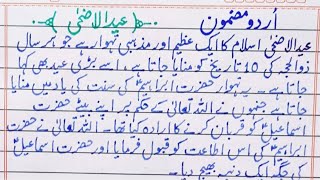 اُردو مضمون
عید الاضحیٰ
عیدالاضحیٰ اسلام کا ایک عظیم اور مذہبی تہوار ہے جو ہر سال
ذوالحجہ کی 10 تاریخ کو منایا جاتا ہے، اسے بڑی عید بھی کہا
جاتا ہے۔ یہ تہوار حضرت ابراہیمؑ کی سنت کی یاد میں منایا
جاتا ہے جنہوں نے اللہ تعالیٰ کے حکم پر اپنے بیٹے حضرت
اسماعیلؑ کو قربان کرنے کا ارادہ کیا تھا۔ اللہ تعالیٰ نے حضرت
ابراہیمؑ کی اس اطاعت کو قبول فرمایا اور حضرت اسماعیلؑ
کی جگہ ایک دنبہ بھیج دیا۔